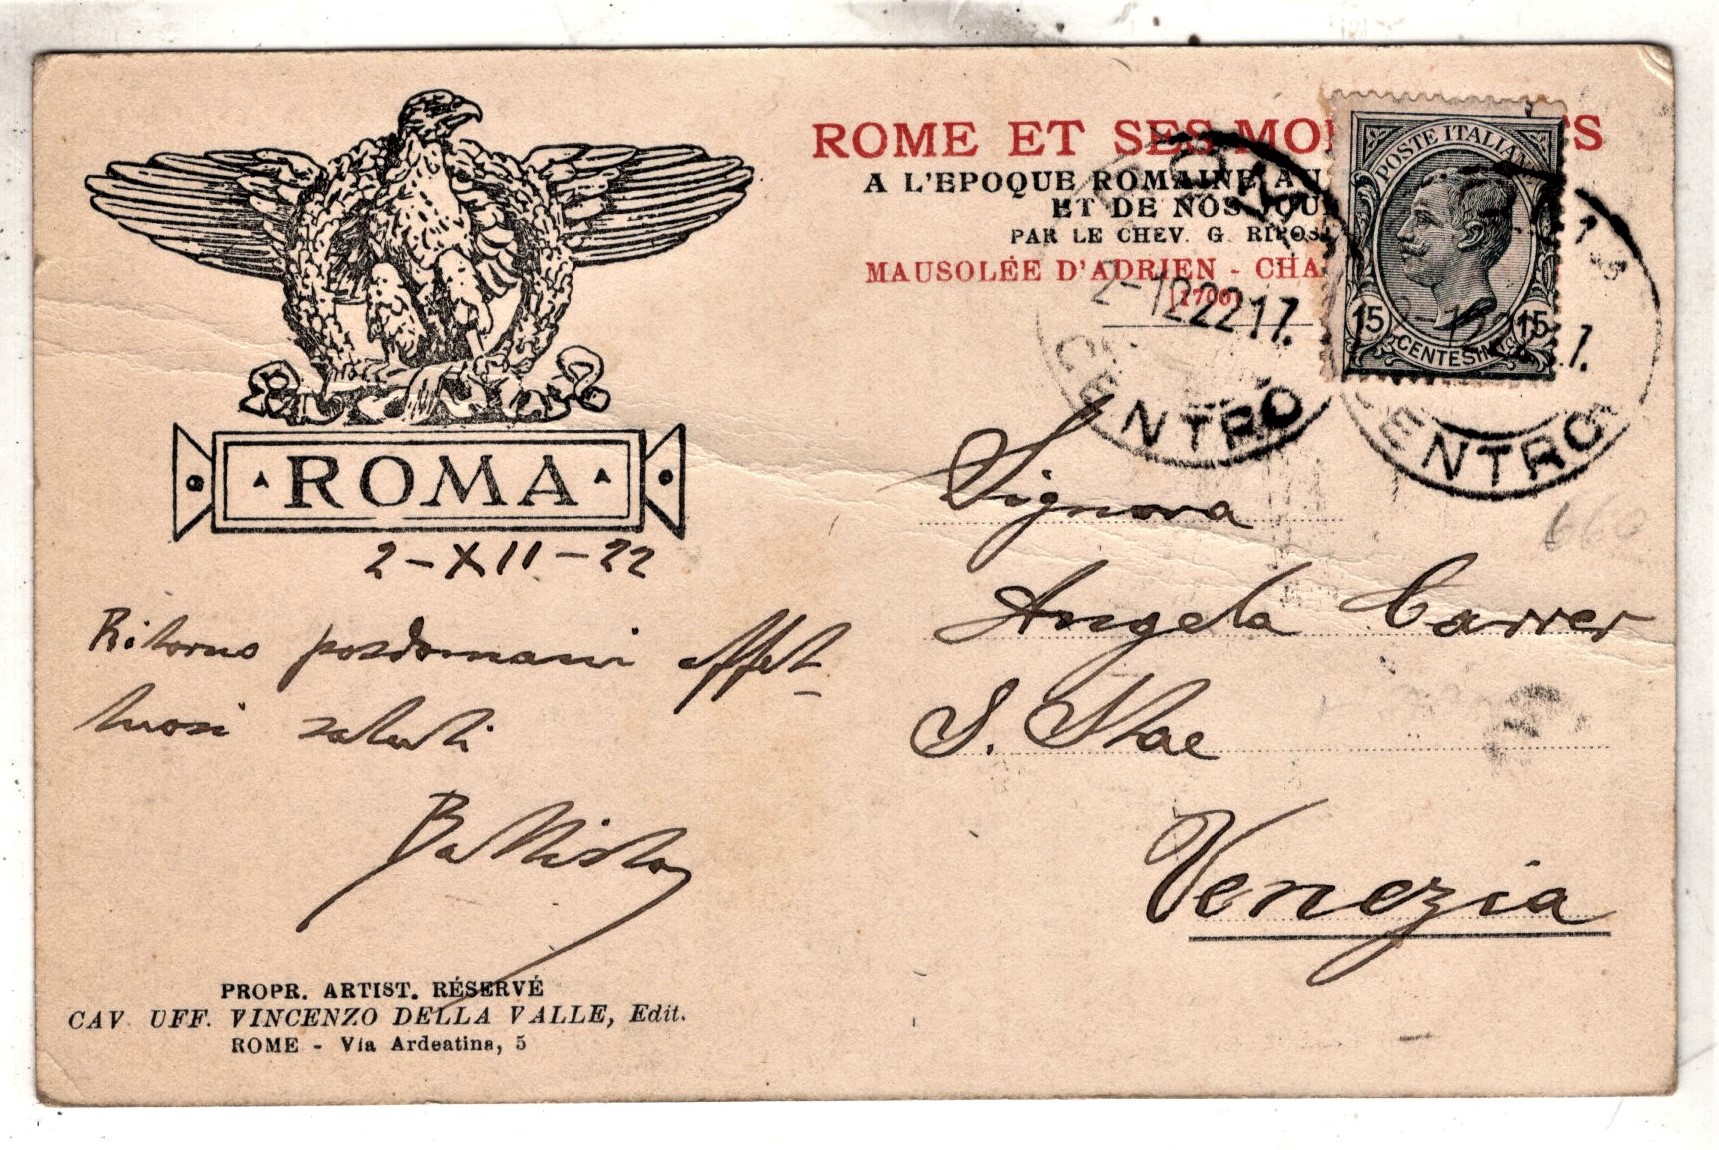 ROMA
2-XII-22
Ritorno posdomani affet-
tuosi saluti
Battista
PROPR. ARTIST. RÉSERVÉ
CAV. UFF. VINCENZO DELLA VALLE, Edit.
ROME - Via Ardeatina, 5
ROME ET SES MO
A L'EPOQUE ROMAINE AU
ET DE NOS JOU
PAR LE CHEV. G. RIPOS
MAUSOLÉE D'ADRIEN - CHA
(1700)
POSTE ITALIANE
15 CENTESIMI 15
2-12 22 17.
CENTRO
CENTRO
Signora
Angela Carrer
S. Stae
Venezia
660